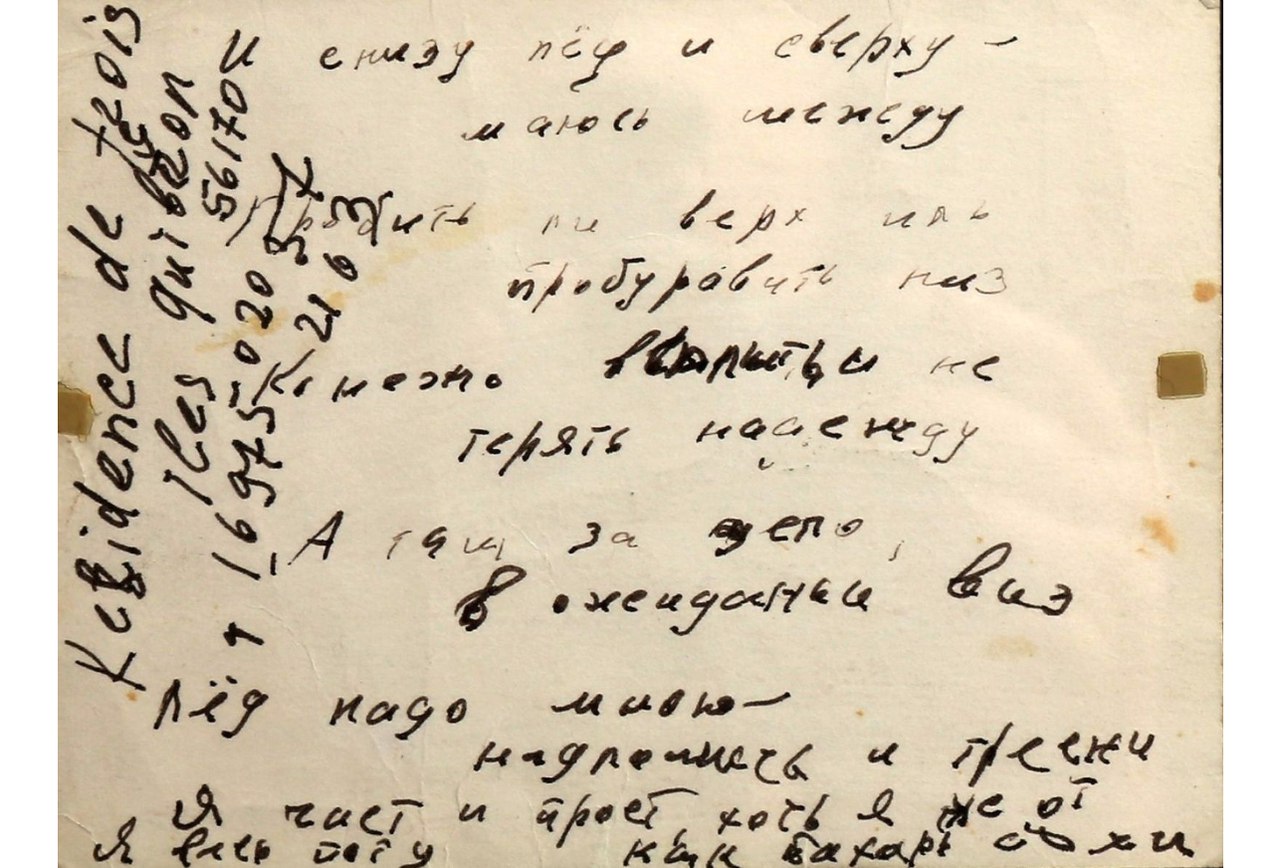 И снизу лёд и сверху –
маюсь между
Пробить ли верх иль
пробуравить низ
Конечно всплыть и не
терять надежду
А там за дело,
в ожидании виз
Лёд надо мною –
надломись и тресни
Я чист и прост хоть я не от
Я весь в поту как пахарь сохи
Residence de trois
iles quibzon
56170
16 975-020
21 63